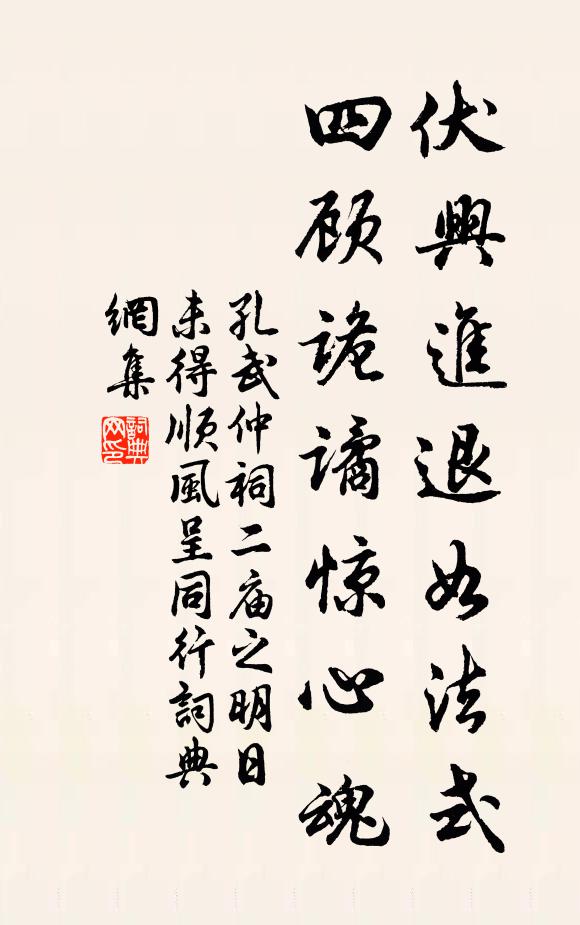 伏興進退如法式
四顾詭譎惊心魂
孔武仲祠二庙之明日
未得順風呈同行詞典
網集
詞典网印